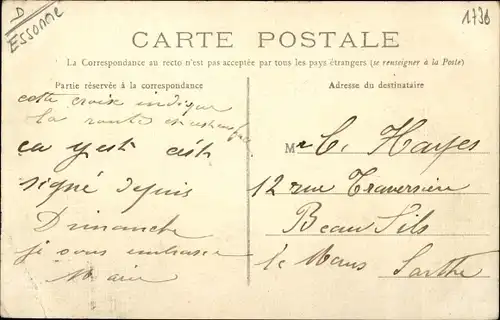 D
Essonne
1736
CARTE POSTALE
La Correspondance au recto n'est pas acceptée par tous les pays étrangers (se renseigner à la Poste)
Partie réservée à la correspondance
cette croix indique
la route
ça y est c'est
signé depuis
Dimanche
je vous embrasse
Marie
Adresse du destinataire
Mr C. Hayes
12 rue Traversière
Beau Fils
le Mans Sarthe